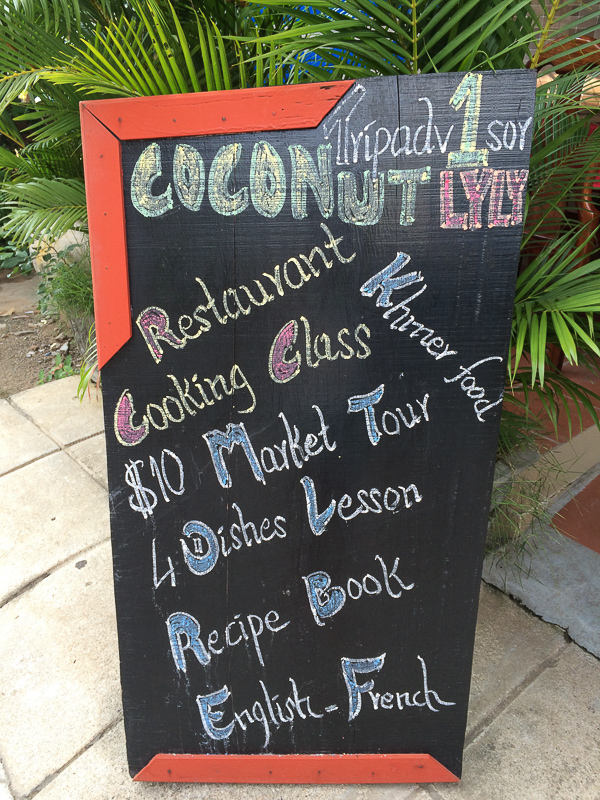 Tripadv1sor
COCONUT LYLY
Restaurant
Khmer food
Cooking Class
$10 Market Tour
4 Dishes Lesson
Recipe Book
English - French